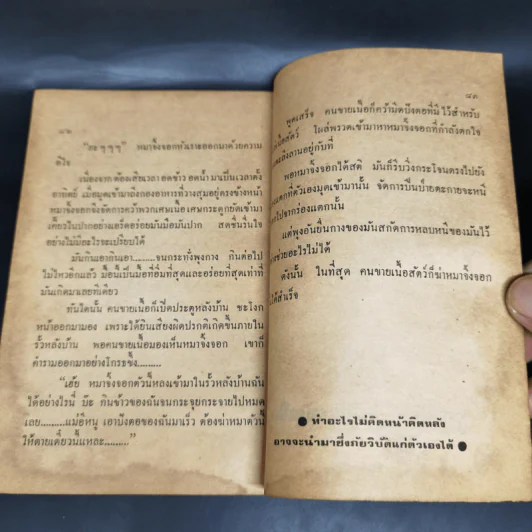 ๘๒
"ฮะ ๆ ๆ ๆ" หมาจิ้งจอกหัวเราะออกมาด้วยความ
ดีใจ
เนื่องจากต้องเสียเวลาอดข้าวอดน้ำมาเป็นเวลาตั้ง
อาทิตย์ เมื่อมุดเข้ามาลงกองอาหารที่วางสุมอยู่ตรงข้างหน้า
หมาจิ้งจอกจึงจัดการคว้าพวกเศษเนื้อเศษกระดูกยัดเข้ามา
เคี้ยวในปากอย่างเอร็ดอร่อยมันมือมันปาก สดชื่นรื่นใจ
อย่างไม่มีอะไรจะเปรียบได้
มันกินเอากินเอา........จนกระทั่งพุงกาง กินต่อไป
ไม่ไหวอีกแล้ว มื้อนี้เป็นมื้อที่อิ่มที่สุดและอร่อยที่สุดเท่าที่
มันเกิดมาเลยทีเดียว
ทันใดนั้น คนขายเนื้อก็เปิดประตูหลังบ้าน ชะโงก
หน้าออกมามอง เพราะได้ยินเสียงผิดปรกติเกิดขึ้นภายใน
รั้วหลังบ้าน พอคนขายเนื้อมองเห็นหมาจิ้งจอก เขาก็
คำรามออกมาอย่างโกรธขึ้ง.........
"เฮ้ย หมาจิ้งจอกตัวนี้หลงเข้ามาในรั้วหลังบ้านฉัน
ได้อย่างไรนี่ บ๊ะ กินข้าวของฉันจนกระจุยกระจายไปหมด
เลย........แม่อีหนู เอาปังตอของฉันมาเร็ว ต้องฆ่าหมาตัวนี้
ให้ตายเดี๋ยวนี้แหละ........."
๘๓
พูดเสร็จ คนขายเนื้อก็คว้ามีดปังตอที่มีไว้สำหรับ
เนื้อสัตว์ โผล่พรวดเข้ามาหาหมาจิ้งจอกที่กำลังตกใจ
ลนลานอยู่กับที่
พอหมาจิ้งจอกได้สติ มันก็รีบวิ่งกระโจนตรงไปยัง
แตกที่ตัวเองมุดเข้ามานั้น จัดการปีนป่ายตะกายจะหนี
ไปจากร่องแตกนั้น
แต่พุงอันยื่นกางของมันสกัดการหลบหนีของมันไว้
ช่วยอะไรไม่ได้
ดังนั้น ในที่สุด คนขายเนื้อสัตว์ก็ฆ่าหมาจิ้งจอก
ได้สำเร็จ
● ทำอะไรไม่คิดหน้าคิดหลัง
อาจจะนำมาซึ่งภัยวิบัติแก่ตัวเองได้ ●